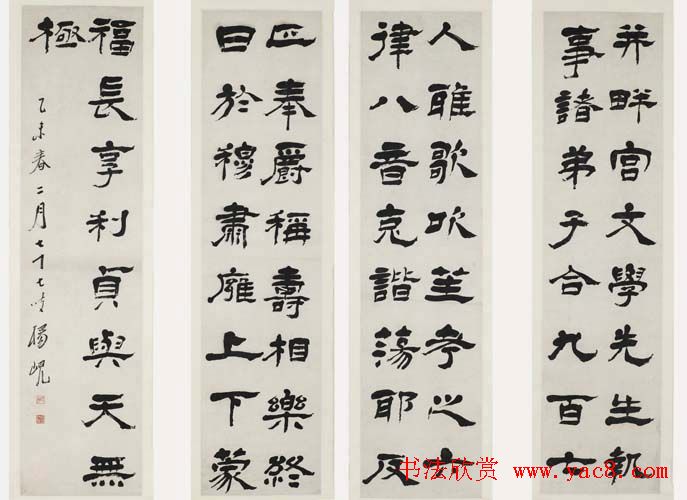 并畔宫文學先生執
事諸弟子合九百七
人雅歌吹笙考之六
律八音克諧蕩耶反
正奉爵稱壽相樂終
日於穆肅廱上下蒙
福長享利貞與天無
極
乙未春二月七十七叟楊峴
书法欣赏 www.yac8.com